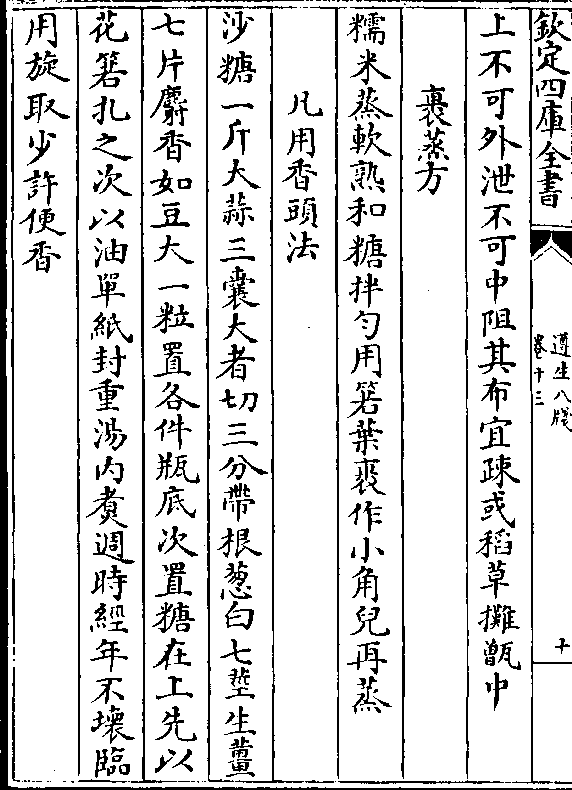 欽定四庫全書
遵生八牋
卷十三
十
上不可外泄不可中阻其布宜疎或稻草攤甑中
裹蒸方
糯米蒸軟熟和糖拌勻用箬葉裹作小角兒再蒸
凡用香頭法
沙糖一斤大蒜三囊大者切三分帶根葱白七莖生薑
七片麝香如豆大一粒置各件瓶底次置糖在上先以
花箬扎之次以油單紙封重湯内煑週時經年不壞臨
用旋取少許便香